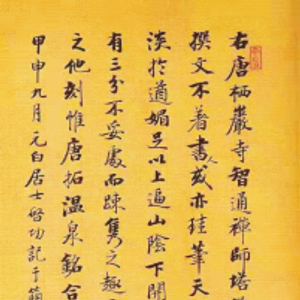 右唐栖巖寺智通禪師塔
撰文不著書人或亦珪筆天
淡於遒媚足以上逼山陰下開
有三分不妥處而踈雋之趣
之他刻惟唐拓溫泉銘合
甲申九月元白居士啓功記于